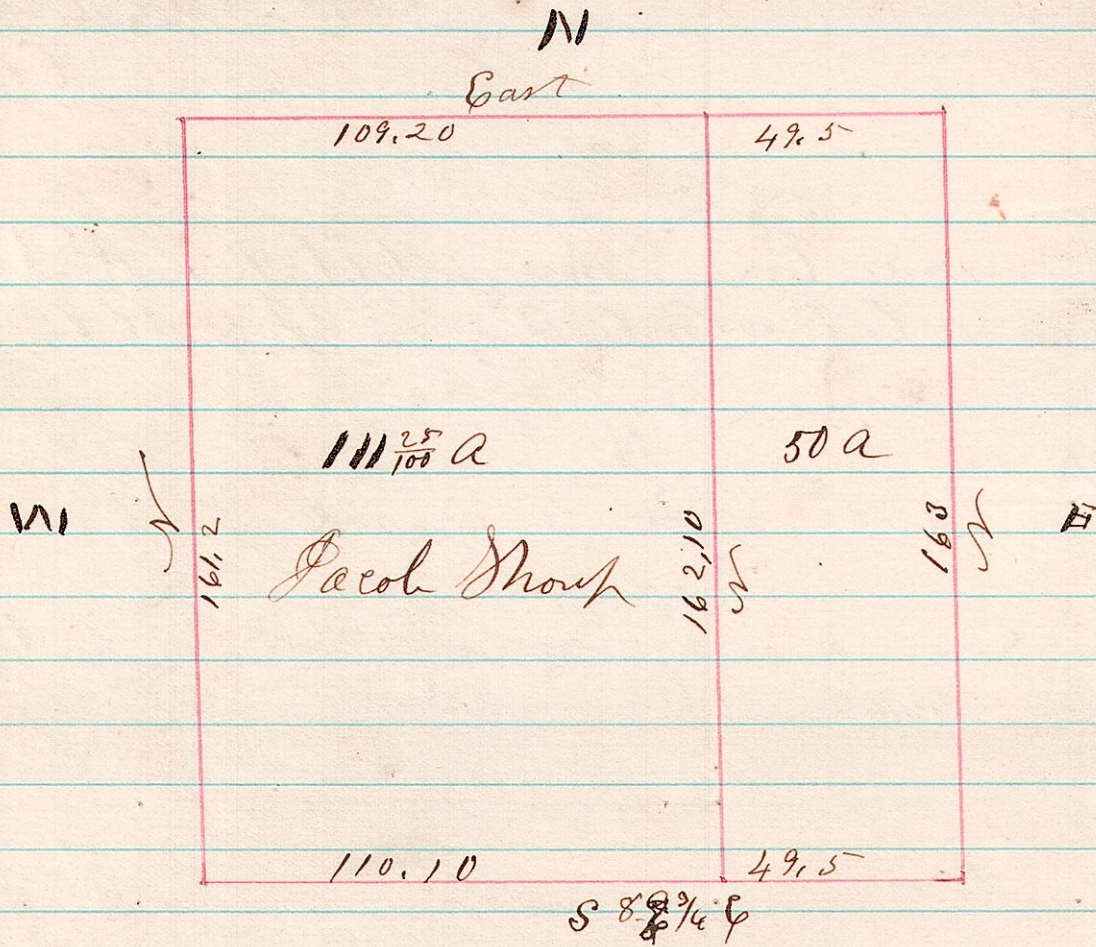 N
East
109.20
49.5
111 25/100 A
50 A
W
161.2
Jacob Shoup
162,10
163
E
110.10
49,5
S 3/4 E